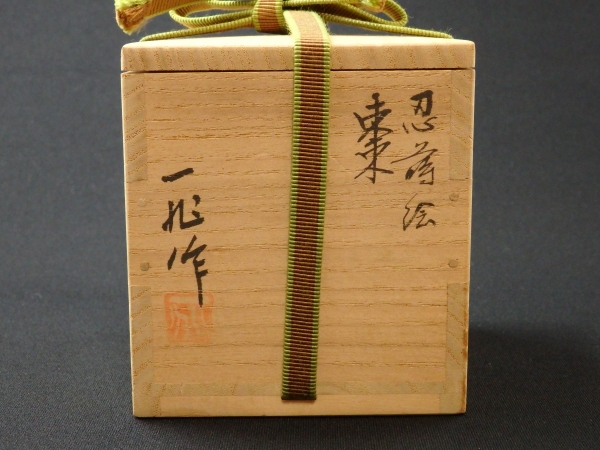 忍蒔絵
棗
一兆作